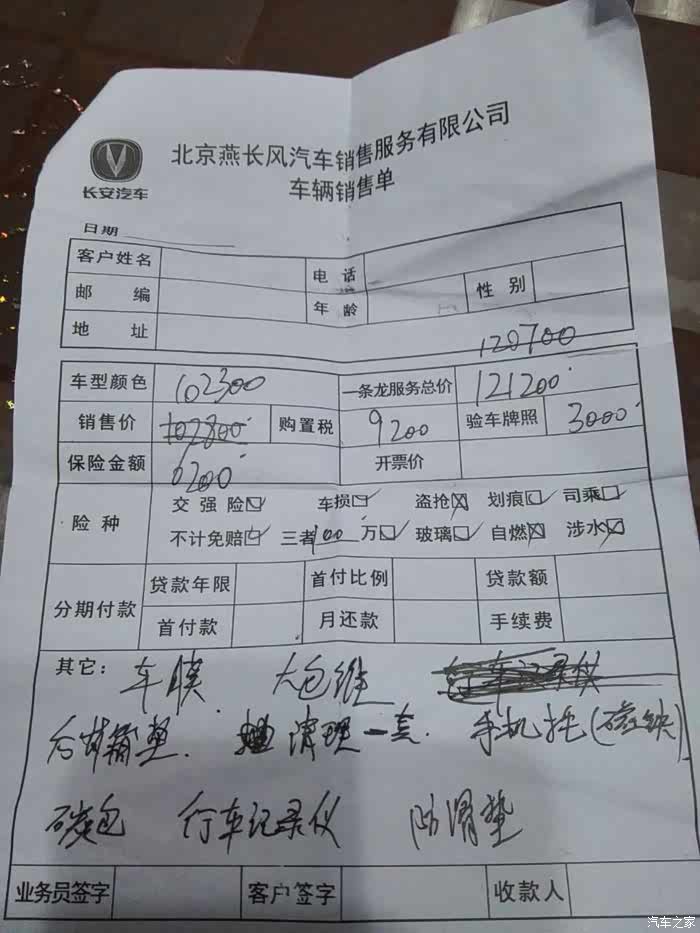 北京燕长风汽车销售服务有限公司
长安汽车
车辆销售单
日期
客户姓名 电话
邮编 年龄 性别
地址
120700
车型颜色 102300 一条龙服务总价 121200
销售价 102800 购置税 9200 验车牌照 3000
保险金额 6200 开票价
险种
交强险 车损 盗抢 划痕 司乘
不计免赔 三者100万 玻璃 自燃 涉水
分期付款
贷款年限 首付比例 贷款额
首付款 月还款 手续费
其它: 车膜 大包维 行车记录仪
后备箱垫. 清理一套. 手机托(磁铁)
碳包 行车记录仪 防滑垫
业务员签字 客户签字 收款人
汽车之家